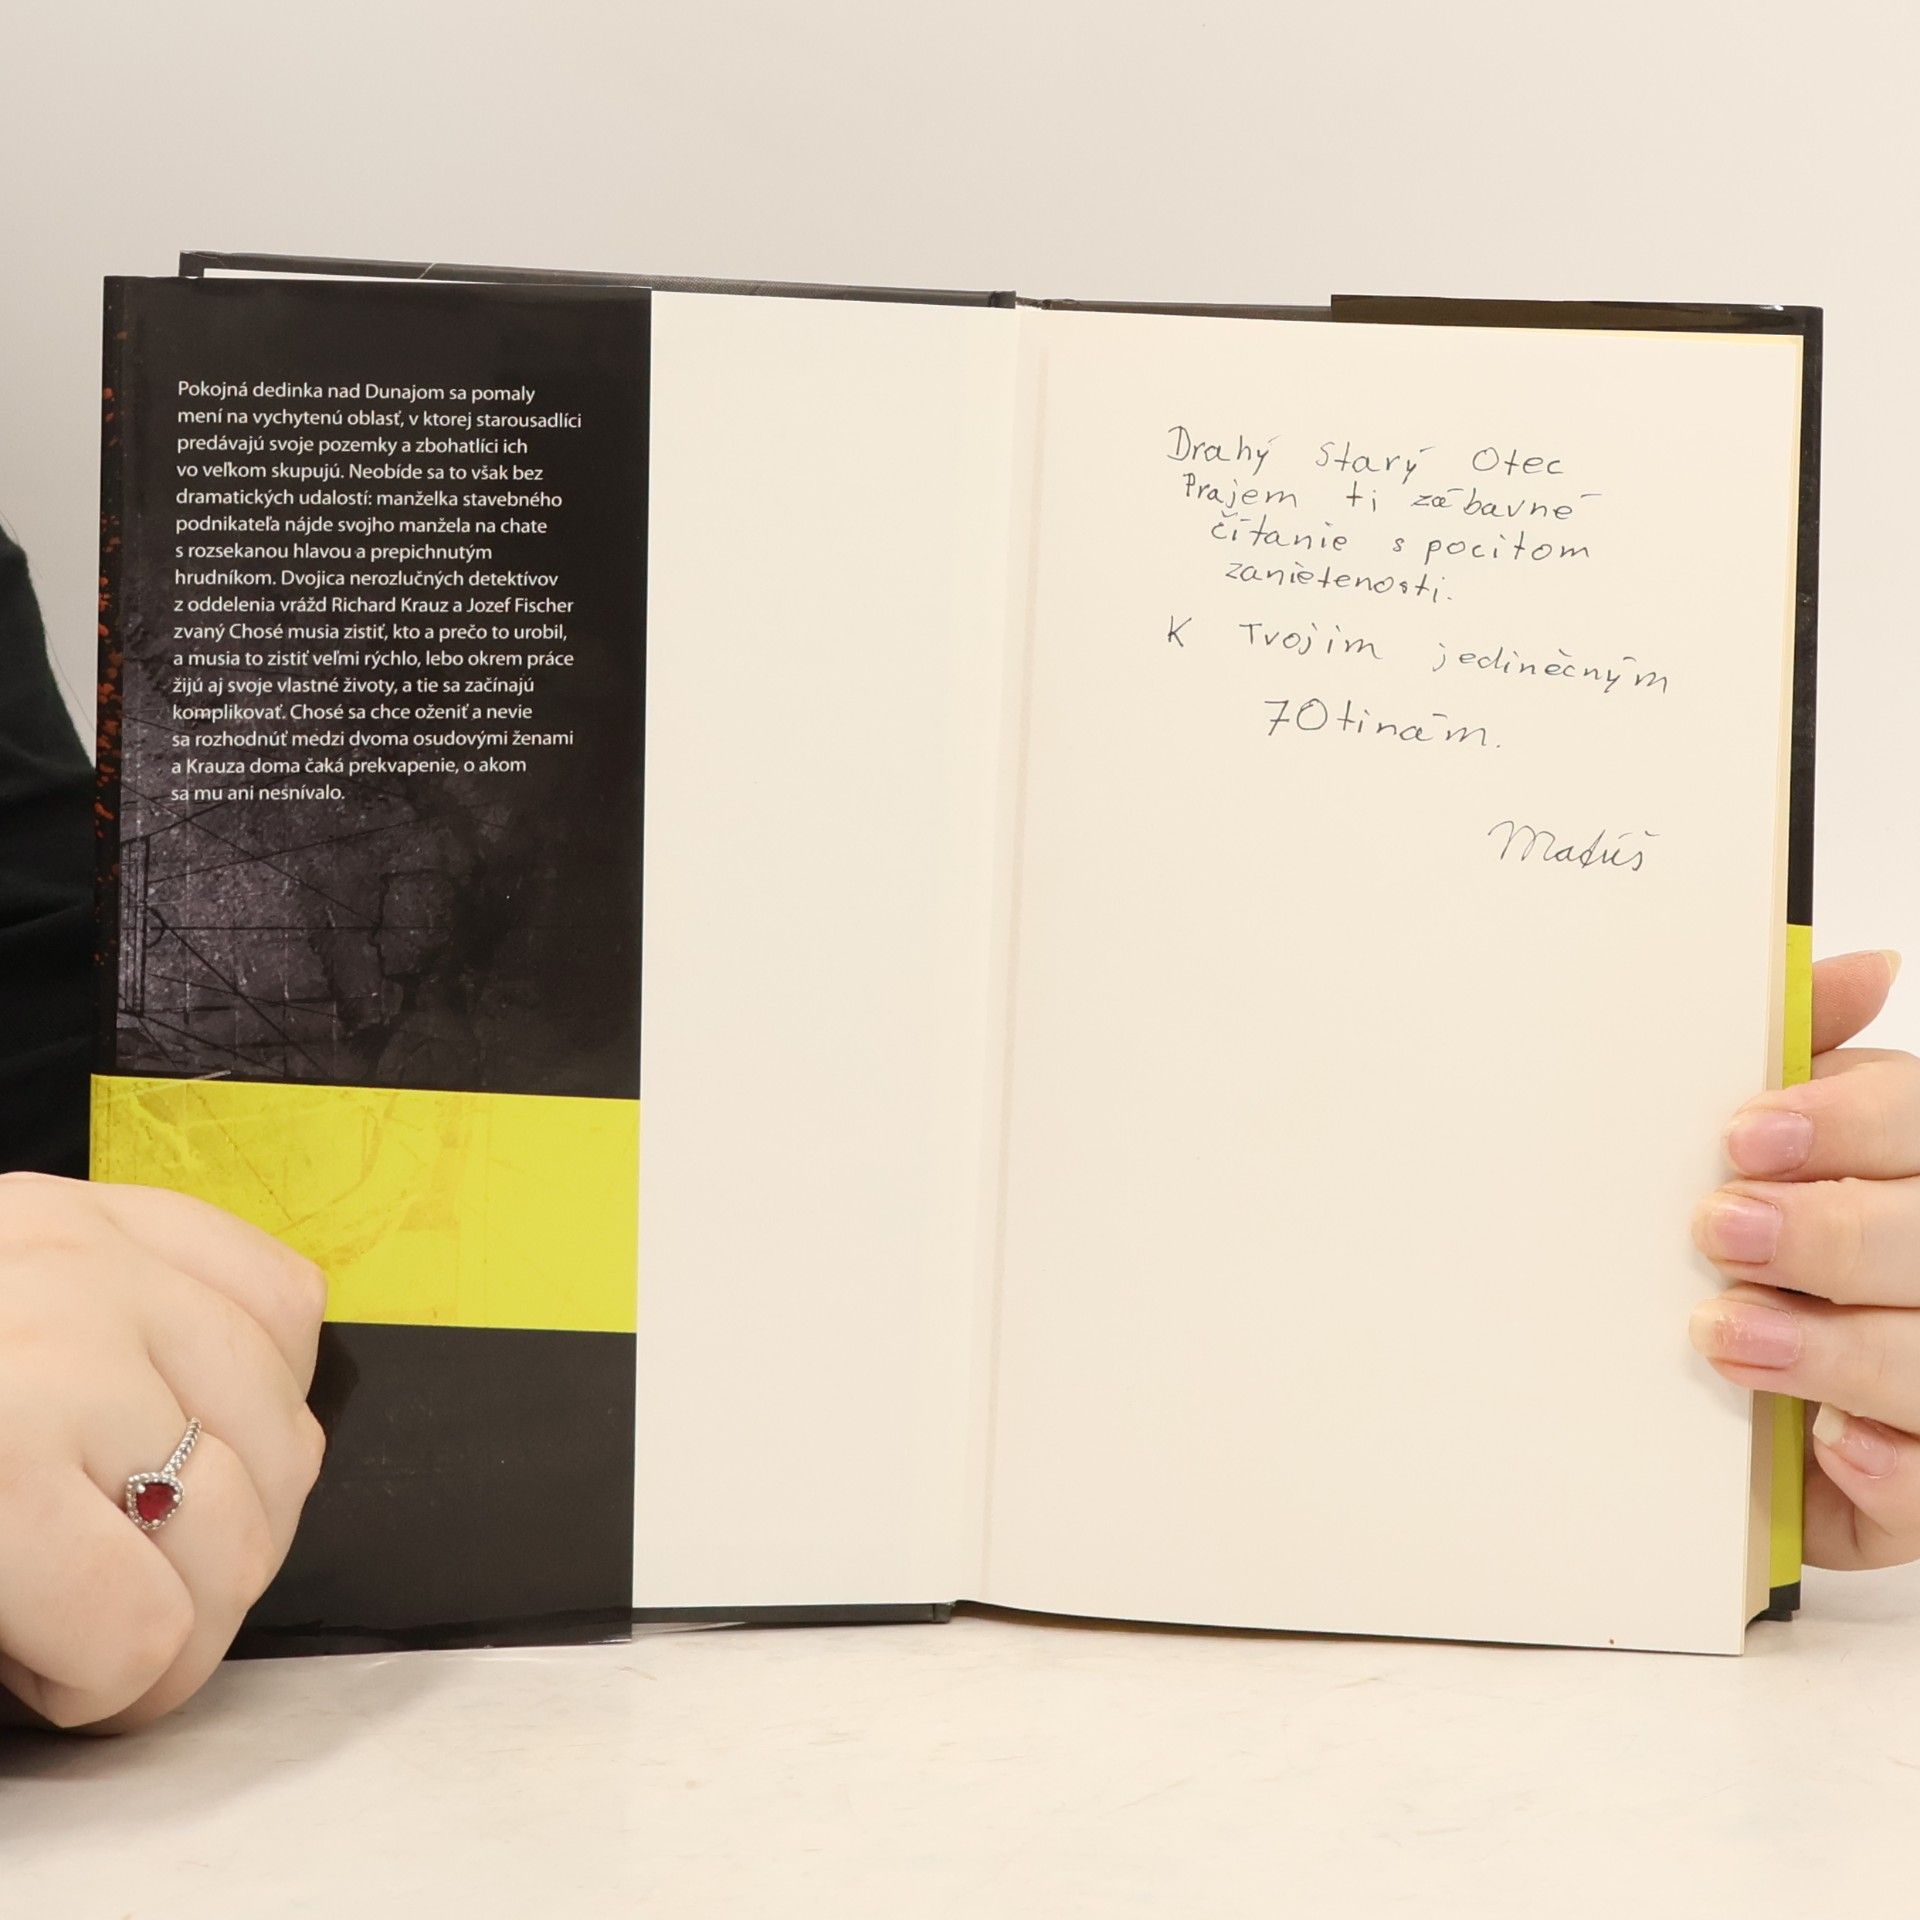 Pokojná dedinka nad Dunajom sa pomaly
mení na vychytenú oblasť, v ktorej starousadlíci
predávajú svoje pozemky a zbohatlíci ich
vo veľkom skupujú. Neobíde sa to však bez
dramatických udalostí: manželka stavebného
podnikateľa nájde svojho manžela na chate
s rozsekanou hlavou a prepichnutým
hrudníkom. Dvojica nerozlučných detektívov
z oddelenia vrážd Richard Krauz a Jozef Fischer
zvaný Chosé musia zistiť, kto a prečo to urobil,
a musia to zistiť veľmi rýchlo, lebo okrem práce
žijú aj svoje vlastné životy, a tie sa začínajú
komplikovať. Chosé sa chce oženiť a nevie
sa rozhodnúť medzi dvoma osudovými ženami
a Krauza doma čaká prekvapenie, o akom
sa mu ani nesnívalo.
Drahý Starý Otec
Prajem ti zábavné
čítanie s pocitom
zanietenosti.
K Tvojim jedinečným
70tinám.
Matúš